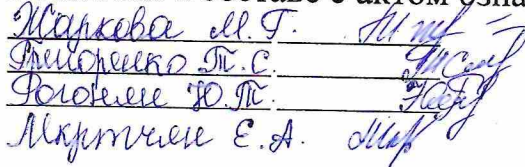 составе с актом озна
Жаркова М.Г.
Григоренко Т.С.
Рогонян Ю.Т.
Мкртчян Е.А.